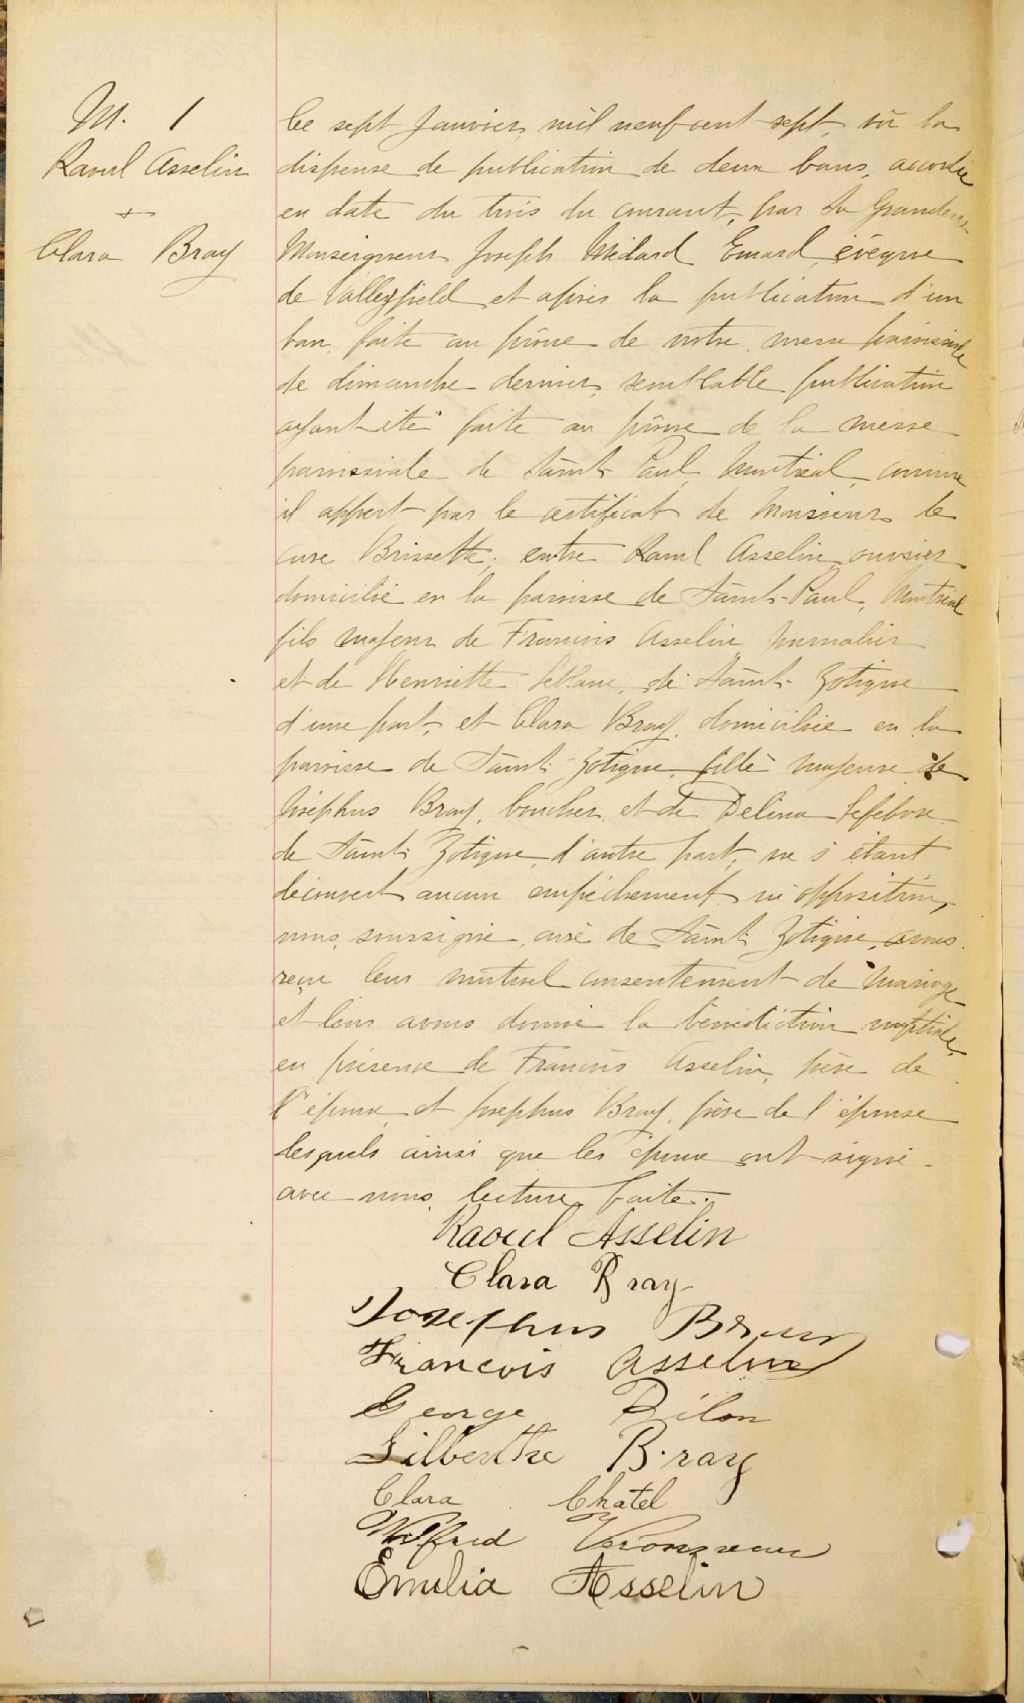 M. 1
Raoul Asselin
+
Clara Bray
Ce sept Janvier, mil neuf cent sept, vu la
dispense de publication de deux bans, accordée
en date du trois du courant, par Sa Grandeur
Monseigneur Joseph Médard Emard évêque
de Valleyfield et après la publication d'un
ban, faite au prône de notre messe paroissiale
de dimanche dernier, semblable publication
ayant été faite au prône de la messe
paroissiale de Saint Paul, Montréal, comme
il appert par le certificat de Monsieur le
curé Brissette; entre Raoul Asselin, ouvrier
domicilié en la paroisse de Saint-Paul, Montréal
fils majeur de Francois Asselin journalier
et de Henriette de Saint-Zotique
d'une part, et Clara Bray, domiciliée en la
paroisse de Saint-Zotique, fille majeure de
Joséphus Bray, boucher, et de Delina Lefebvre
de Saint-Zotique d'autre part, ne s'étant
découvert aucun empêchement ni opposition,
nous, soussigné, curé de Saint-Zotique, avons
reçu leur mutuel consentement de mariage
et leur avons donné la bénédiction nuptiale
en présence de Francois Asselin, père de
l'époux, et Josephus Bray, père de l'épouse
lesquels ainsi que les époux ont signé
avec nous, lecture faite.
Raoul Asselin
Clara Bray
Josephus Bray
Francois Asselin
George Pilon
Gilberthe Bray
Clara Chatel
Wilfrid
Emilia Asselin